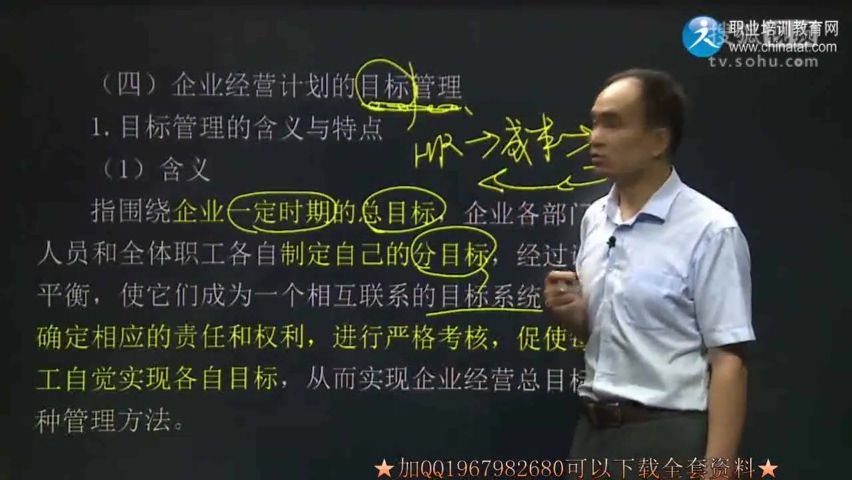 职业培训教育网
www.chinatat.com
tv.sohu.com
（四）企业经营计划的目标管理
1.目标管理的含义与特点
HR→成本→
（1）含义
指围绕企业一定时期的总目标，企业各部门
人员和全体职工各自制定自己的分目标，经过
平衡，使它们成为一个相互联系的目标系统
确定相应的责任和权利，进行严格考核，促使
工自觉实现各自目标，从而实现企业经营总目标
种管理方法。
★加QQ1967982680可以下载全套资料★